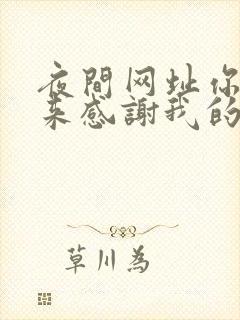 夜間网址你
来感謝我的
草川為